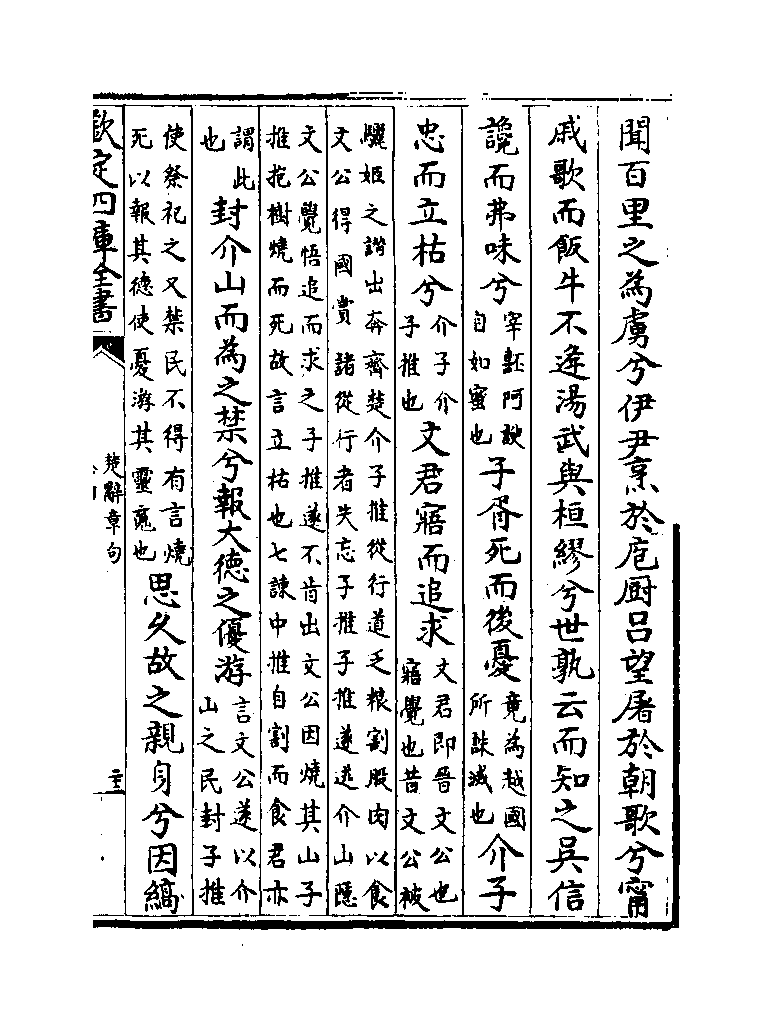 聞百里之為虜兮伊尹烹於庖厨呂望屠於朝歌兮甯
戚歌而飯牛不逢湯武與桓繆兮世孰云而知之吳信
讒而弗味兮宰嚭阿諛
自如蜜也子胥死而後憂竟為越國
所誅滅也介子
忠而立枯兮介子介
子推也文君寤而追求文君即晉文公也
寤覺也昔文公被
驪姬之譛出奔齊楚介子推從行道乏糧割股肉以食
文公得國賞諸從行者失忘子推子推遂逃介山隠
文公覺悟追而求之子推遂不肯出文公因燒其山子
推抱樹燒而死故言立枯也七諫中推自割而食君亦
謂此
也封介山而為之禁兮報大德之優游言文公遂以介
山之民封子推
使祭祀之又禁民不得有言燒
死以報其德使憂游其靈䰟也思久故之親身兮因縞
欽定四庫全書
楚辭章句